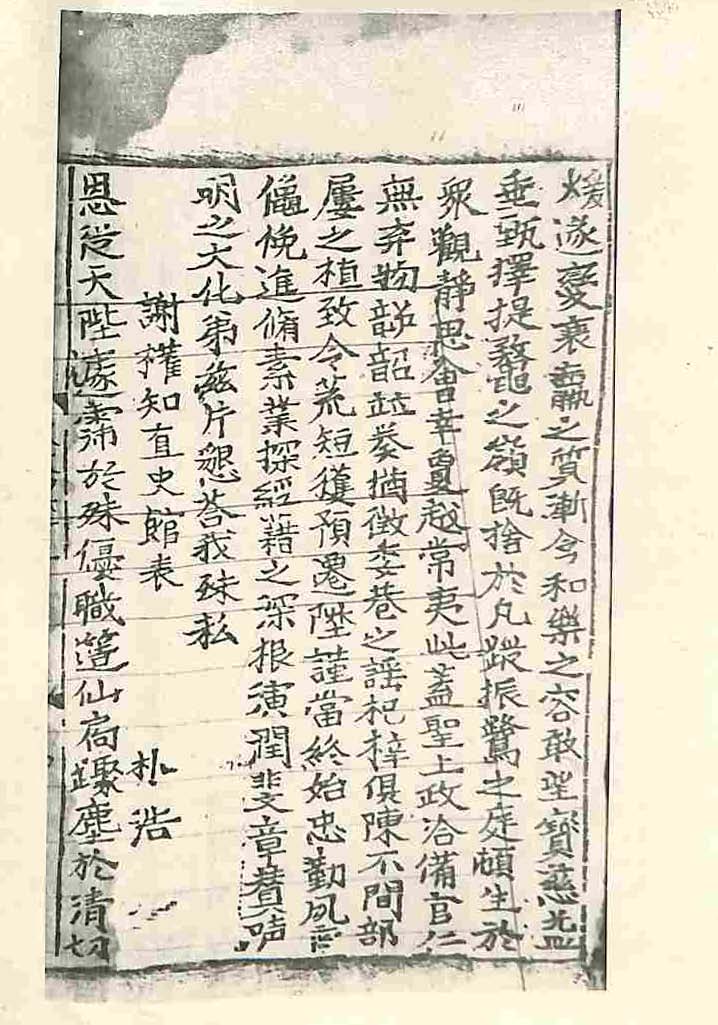 煖遂變衰羸之質漸令和樂之容敢望寶慈益
垂甄擇提鼇之嶺旣捨於凡蹤振鷺之庭頓生於
衆觀靜思會幸夐越常夷此盖聖上政洽備官仁
無弃物韶並奏猶徵委巷之謡杞梓俱陳不間部
屢之植致令荒短獲預遷陞謹當終始忠勤夙
僶俛進脩素業探經籍之深根演潤斐章賛
明之大化苐玆片懇荅我殊私
謝權知直史館表
朴浩
恩從天陛遽霈於殊優職簉仙扃驟塵於清切